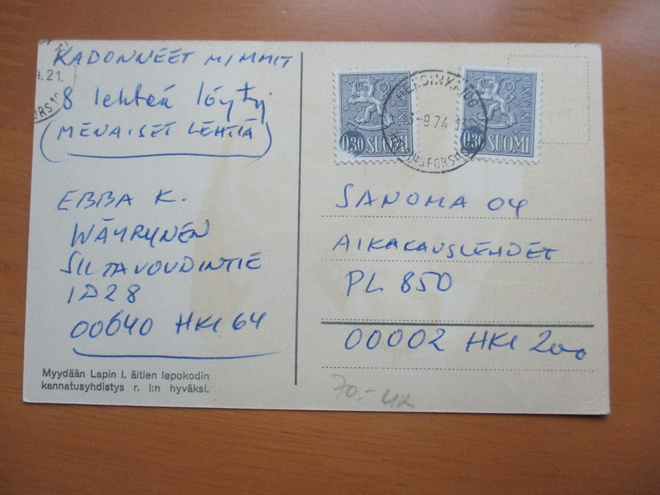 KADONNEET MIMMIT
8 lehteä löytyi
(MENAISET LEHTIÄ)
EBBA K.
WÄYRYNEN
SILTAVOUDINTIE
1D28
00640 HKI 64
Myydään Lapin l. äitien lepokodin
kannatusyhdistys r. l:n hyväksi.
21.
0.30 SUOMI
0.30 SUOMI
-9.74
SANOMA OY
AIKAKAUSLEHDET
PL 850
00002 HKI 200
70.- MK